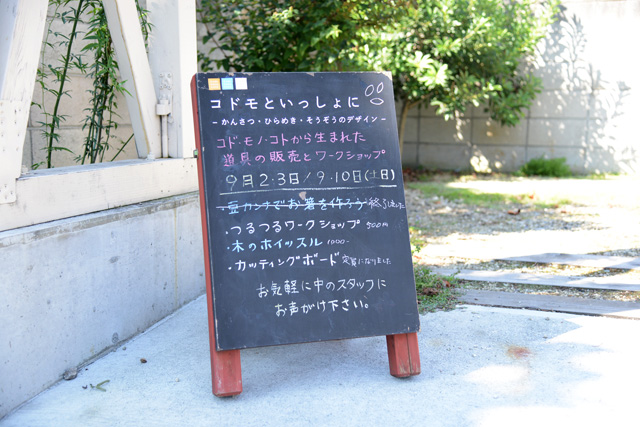 コドモといっしょに
－かんさつ・ひらめき・そうぞうのデザイン－
コド・モノ・コトから生まれた
道具の販売とワークショップ
9月2・3日/9・10日(土日)
・豆カンナでお箸を作ろう 終了しました
・つるつるワークショップ 500円
・木のホイッスル 1000-
・カッティングボード 定員になりました
お気軽に中のスタッフに
お声がけ下さい。